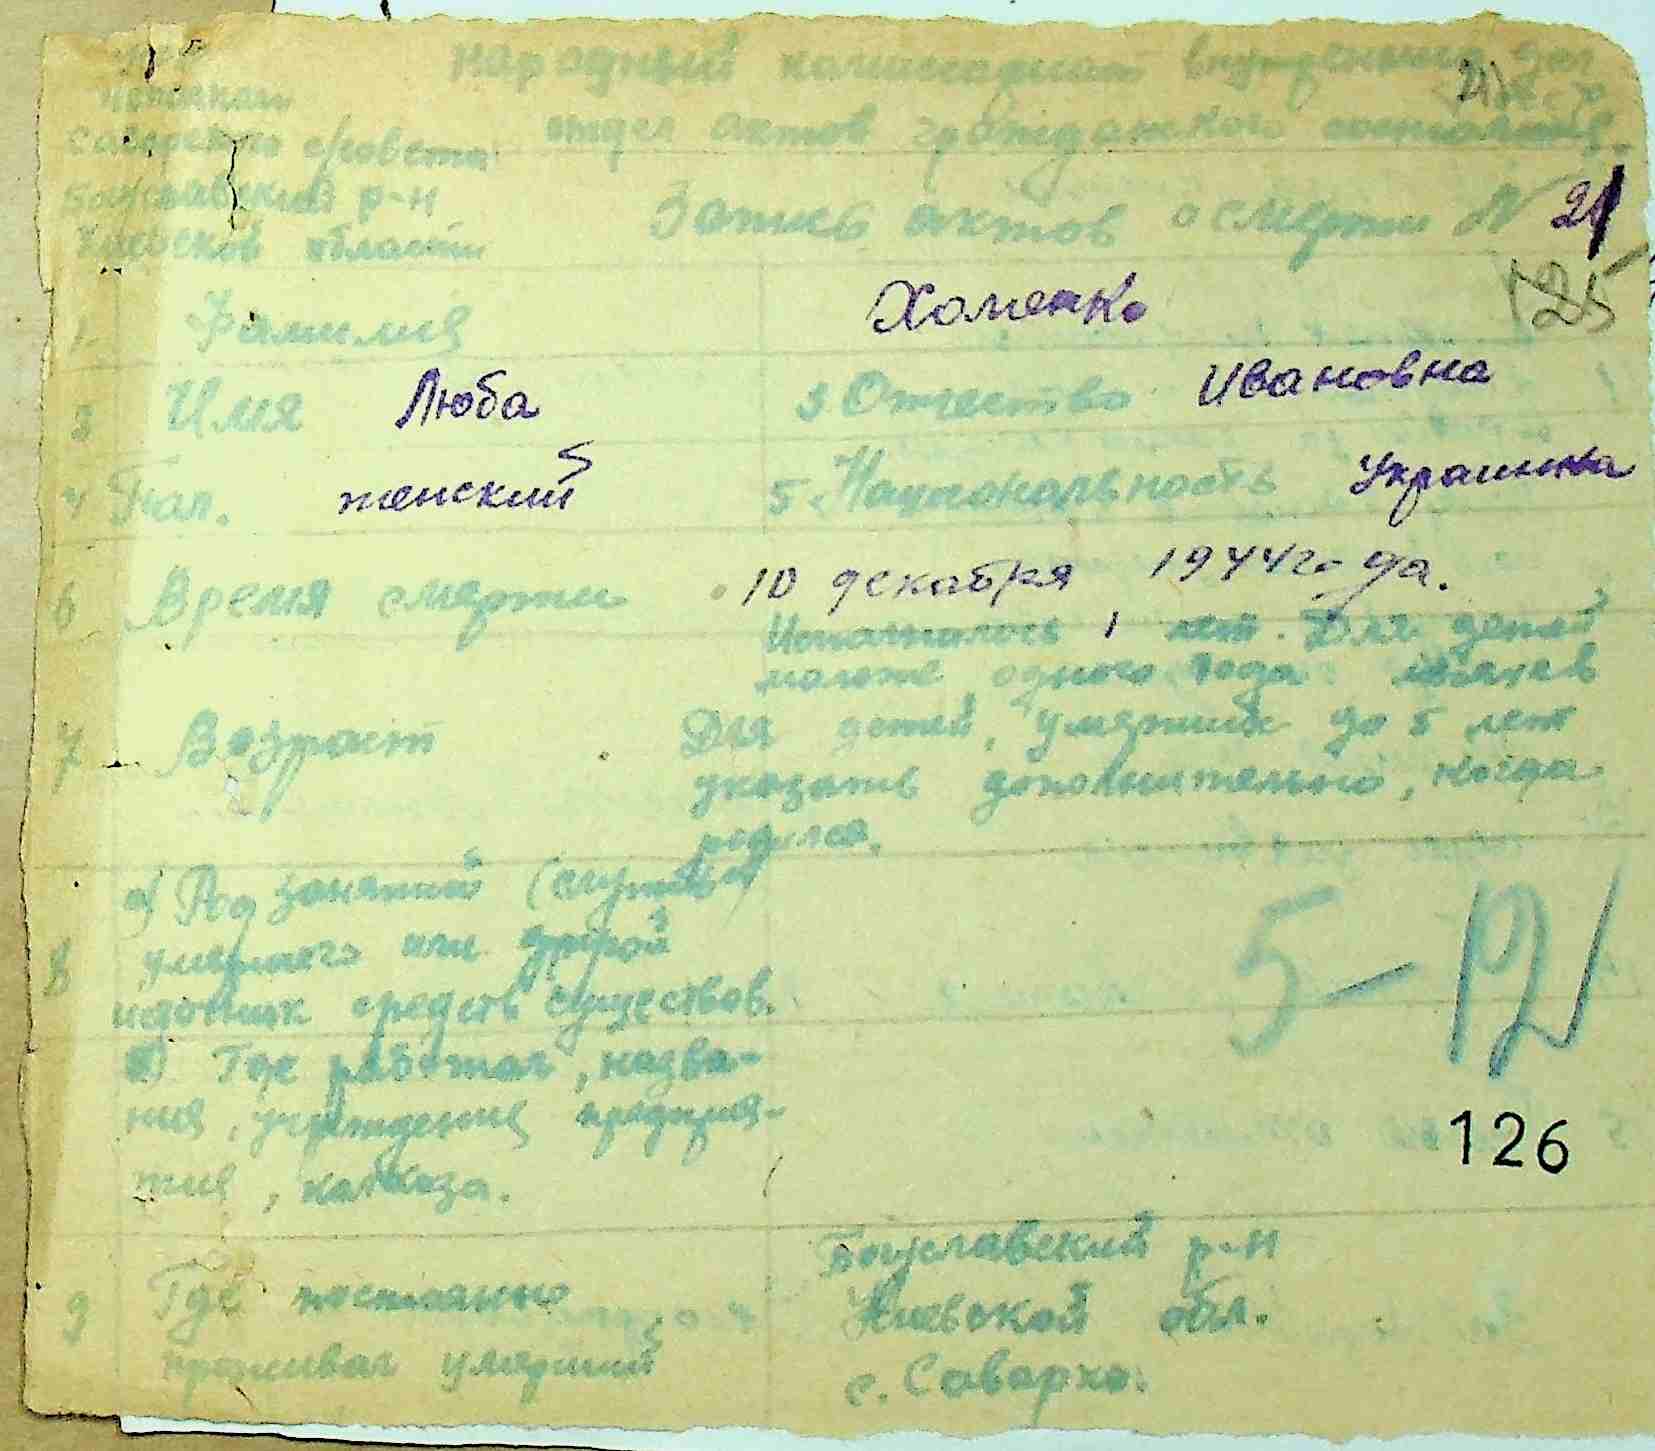 Народный комиссариат внутренних дел
21
исполком
отдел актов гражданского состояния
сельсовета
Богуславский р-н
Киевской области
Запись актов о смерти N 21
125
1. Фамилия Хоменко
2 Имя Люба 3 Отчество Ивановна
4 Пол. женский 5. Национальность Украинка
6 Время смерти 10 декабря 1944 года.
Исполнилось 1 лет. Для детей
моложе одного года месяцев
7 Возраст Для детей, умерших до 5 лет
указать дополнительно, когда
родился.
8 а) Род занятий (службы)
умершего или другой
источник средств существов.
б) Где работал, назва-
ния, учреждения предприя-
тия, колхоза.
5-12
126
9 Где постоянно проживал умерший
Богуславский р-н
Киевской обл.
с. Саварка.